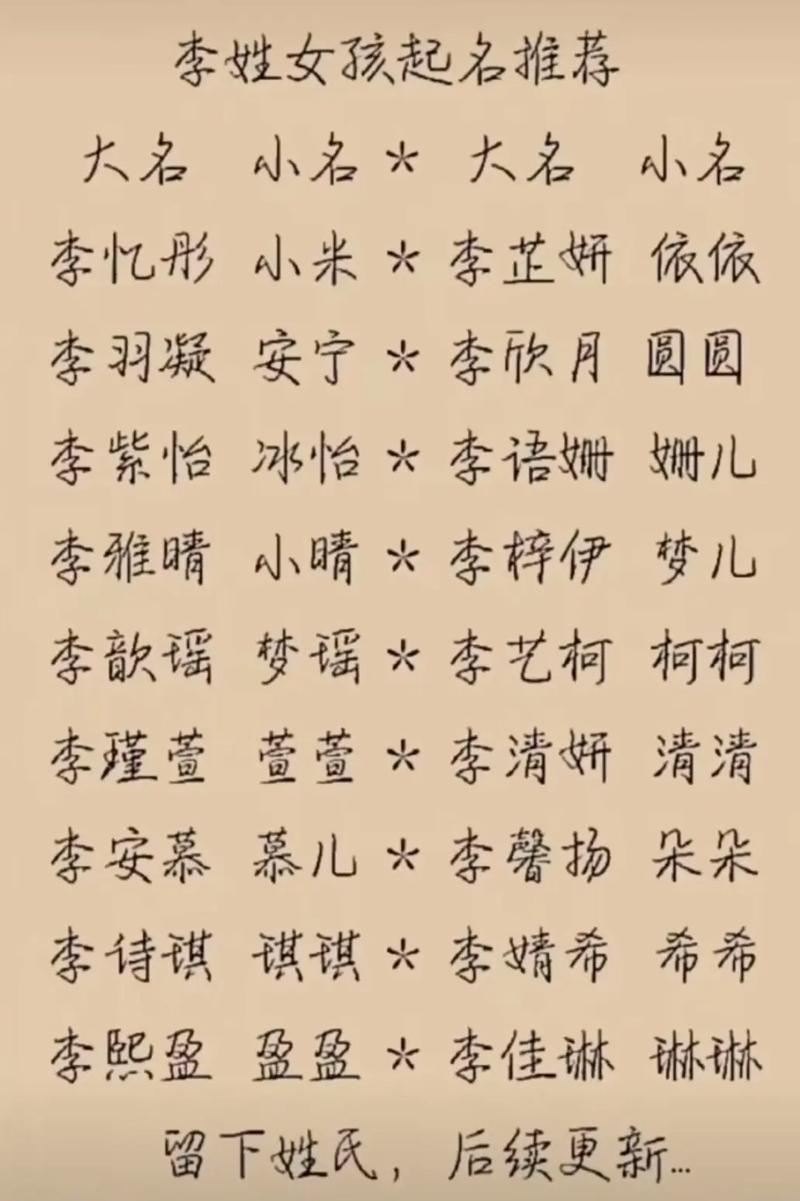 李姓女孩起名推荐
大名 小名 * 大名 小名
李忆彤 小米 * 李芷妍 依依
李羽凝 安宁 * 李欣月 圆圆
李紫怡 冰怡 * 李语姗 姗儿
李雅晴 小晴 * 李梓伊 梦儿
李歆瑶 梦瑶 * 李艺柯 柯柯
李瑾萱 萱萱 * 李清妍 清清
李安慕 慕儿 * 李馨扬 朵朵
李诗琪 琪琪 * 李婧希 希希
李熙盈 盈盈 * 李佳琳 琳琳
留下姓氏，后续更新...